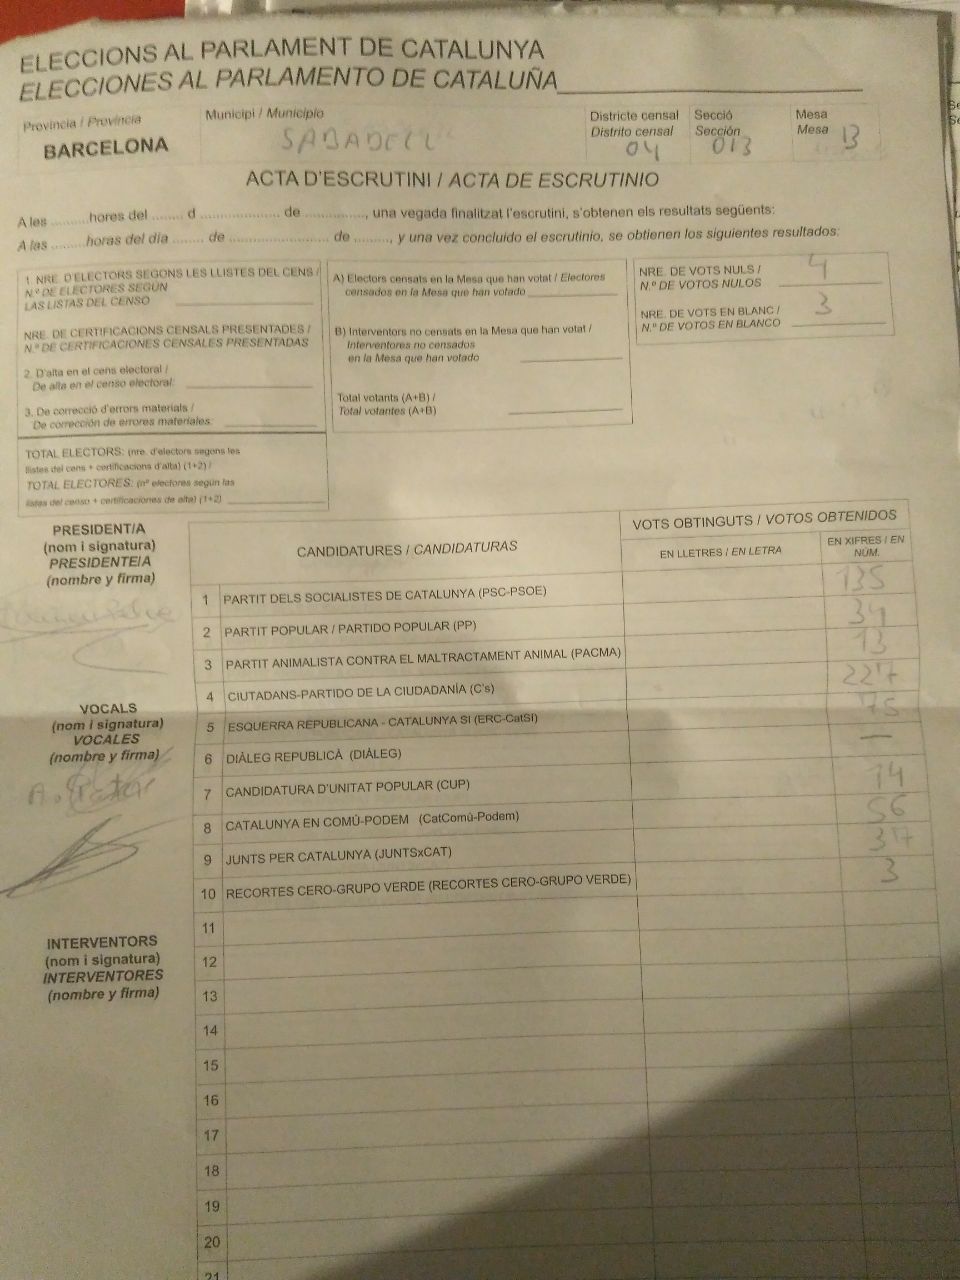 ELECCIONS AL PARLAMENT DE CATALUNYA
ELECCIONES AL PARLAMENTO DE CATALUÑA
Província / Provincia
BARCELONA
Municipi / Municipio
SABADELL
Districte censal
Distrito censal
04
Secció
Sección
013
Mesa
Mesa
B
ACTA D'ESCRUTINI / ACTA DE ESCRUTINIO
A les ......... hores del ........ d .................... de ..............., una vegada finalitzat l'escrutini, s'obtenen els resultats següents:
A las ......... horas del día ........ de ........................ de ........., y una vez concluido el escrutinio, se obtienen los siguientes resultados:
1. NRE. D'ELECTORS SEGONS LES LLISTES DEL CENS /
N.º DE ELECTORES SEGÚN
LAS LISTAS DEL CENSO
NRE. DE CERTIFICACIONS CENSALS PRESENTADES /
N.º DE CERTIFICACIONES CENSALES PRESENTADAS
2. D'alta en el cens electoral /
De alta en el censo electoral:
3. De correcció d'errors materials /
De corrección de errores materiales:
TOTAL ELECTORS: (nre. d'electors segons les
llistes del cens + certificacions d'alta) (1+2) /
TOTAL ELECTORES: (nº electores según las
listas del censo + certificaciones de alta) (1+2)
A) Electors censats en la Mesa que han votat / Electores
censados en la Mesa que han votado
B) Interventors no censats en la Mesa que han votat /
Interventores no censados
en la Mesa que han votado
Total votants (A+B) /
Total votantes (A+B)
NRE. DE VOTS NULS / 4
N.º DE VOTOS NULOS
NRE. DE VOTS EN BLANC / 3
N.º DE VOTOS EN BLANCO
PRESIDENT/A
(nom i signatura)
PRESIDENTE/A
(nombre y firma)
VOCALS
(nom i signatura)
VOCALES
(nombre y firma)
INTERVENTORS
(nom i signatura)
INTERVENTORES
(nombre y firma)
CANDIDATURES / CANDIDATURAS
VOTS OBTINGUTS / VOTOS OBTENIDOS
EN LLETRES / EN LETRA
EN XIFRES / EN
NÚM.
1 PARTIT DELS SOCIALISTES DE CATALUNYA (PSC-PSOE) 135
2 PARTIT POPULAR / PARTIDO POPULAR (PP) 34
3 PARTIT ANIMALISTA CONTRA EL MALTRACTAMENT ANIMAL (PACMA) 13
4 CIUTADANS-PARTIDO DE LA CIUDADANÍA (C's) 227
5 ESQUERRA REPUBLICANA - CATALUNYA SÍ (ERC-CatSÍ) 75
6 DIÀLEG REPUBLICÀ (DIÀLEG) —
7 CANDIDATURA D'UNITAT POPULAR (CUP) 14
8 CATALUNYA EN COMÚ-PODEM (CatComú-Podem) 56
9 JUNTS PER CATALUNYA (JUNTSxCAT) 37
10 RECORTES CERO-GRUPO VERDE (RECORTES CERO-GRUPO VERDE) 3
11
12
13
14
15
16
17
18
19
20
21